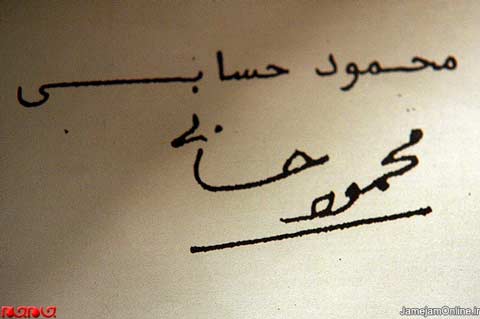 محمود حسابی
محمود حسابی
جام‌جم
JamejamOnline.ir